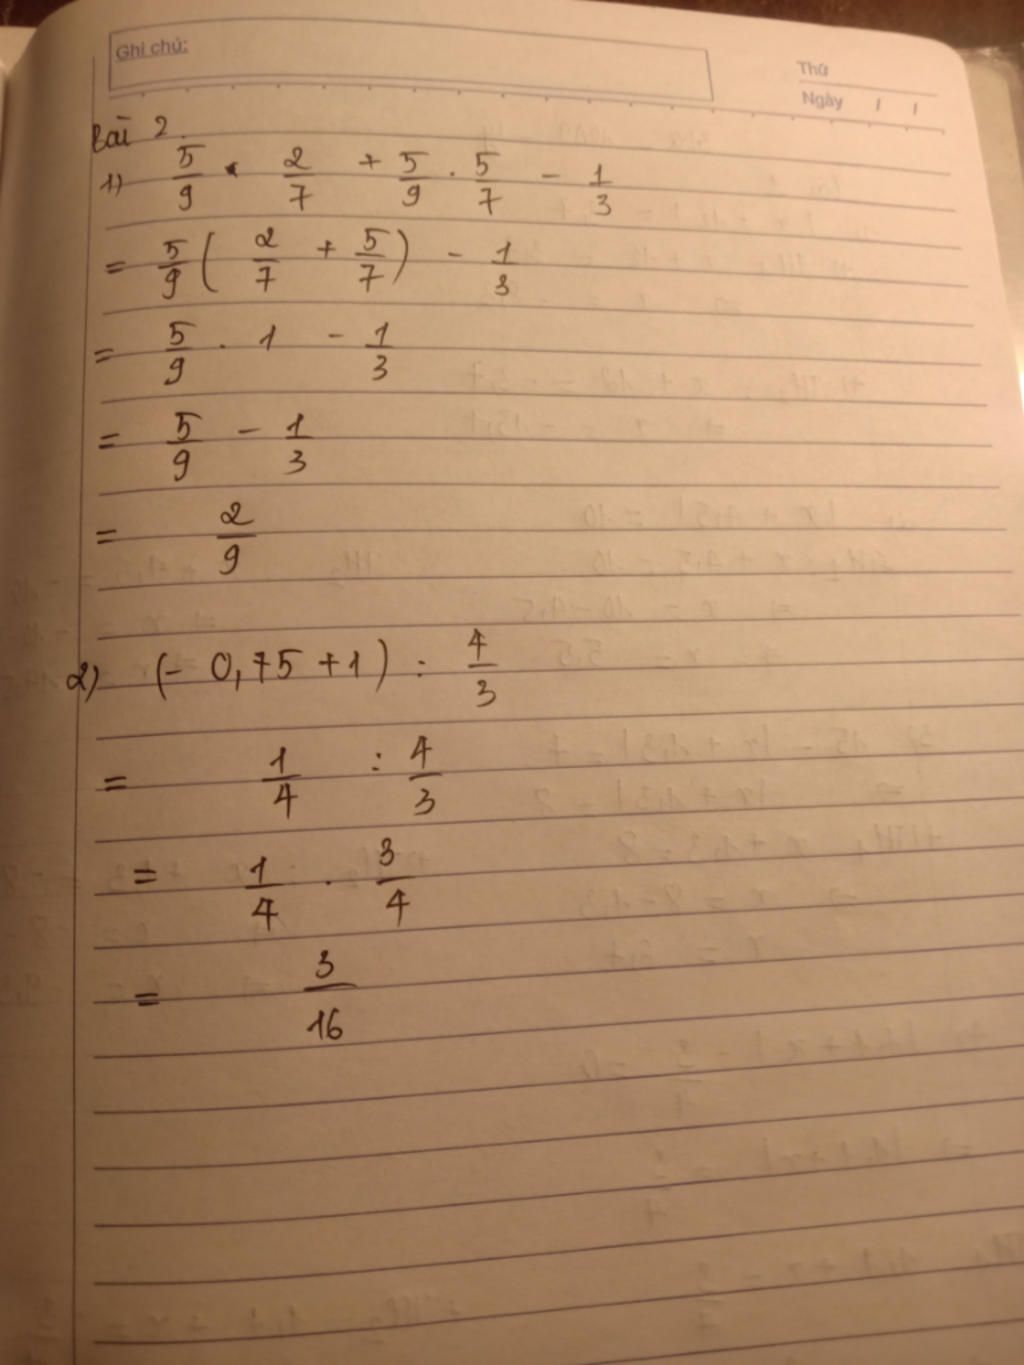 Ghi chú:
Thứ
Ngày / /
Bài 2.
1) 5/9 . 2/7 + 5/9 . 5/7 - 1/3
= 5/9 ( 2/7 + 5/7 ) - 1/3
= 5/9 . 1 - 1/3
= 5/9 - 1/3
= 2/9
2) (- 0,75 + 1) : 4/3
= 1/4 : 4/3
= 1/4 . 3/4
= 3/16